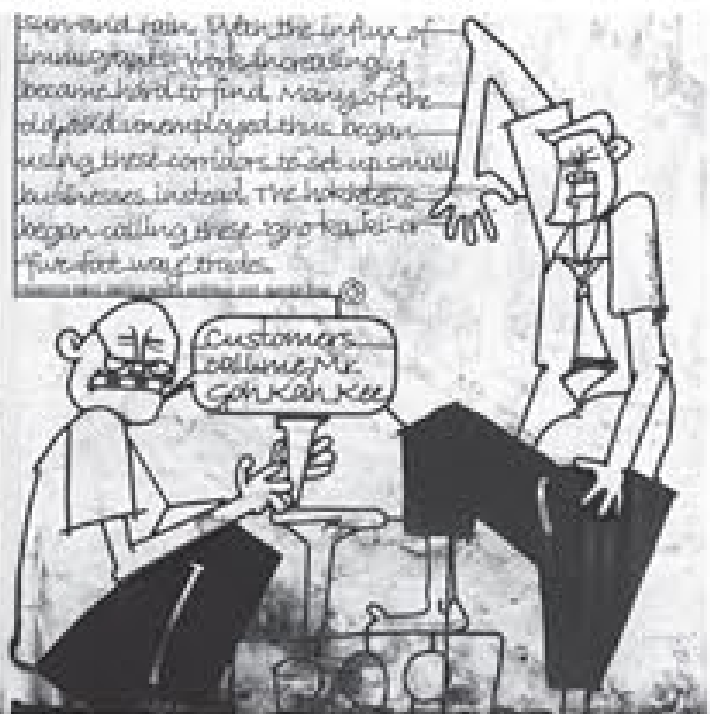 sun and rain. With the influx of
immigrants, work increasingly
became hard to find. Many of the
old and unemployed thus began
using these corridors to set up small
businesses instead. The hokkiens
began calling these "gho kha ki" or
"five foot way" trades.
Customers
call me, Mr.
Goh Kah Kee